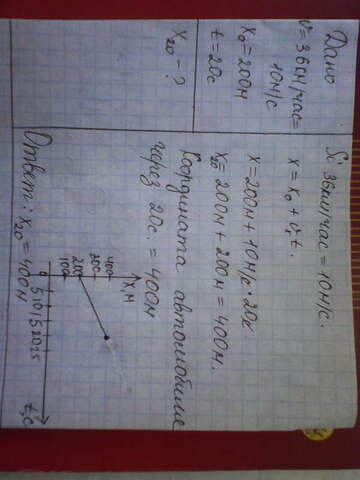 Дано
v=36км/час=
10м/с
x₀=200м
t=20с
x₂₀-?
Si 36км/час=10м/с.
x=x₀+vₓt.
x=200м+10м/с·20с
x₂₀=200м+200м=400м.
Координата автомобиля
через 20с.=400м
x,м
400
300
200
100
0 5 10 15 20 25 t,с
Ответ: x₂₀=400м